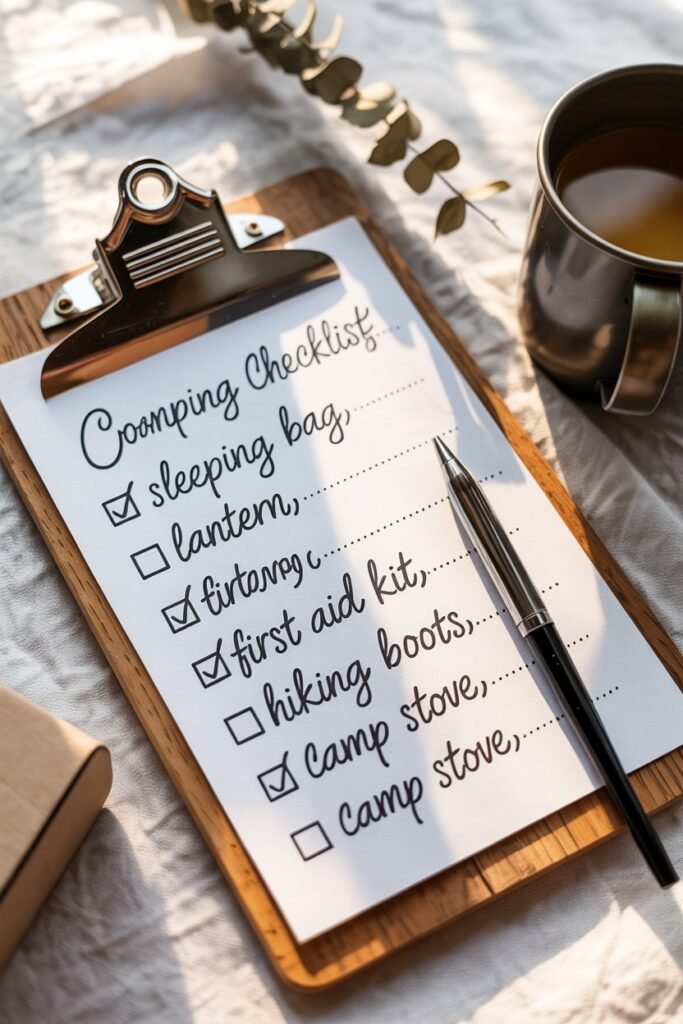 Coomping Checklist
sleeping bag,
lantern,
first aid kit,
hiking boots,
camp stove,
camp stove,